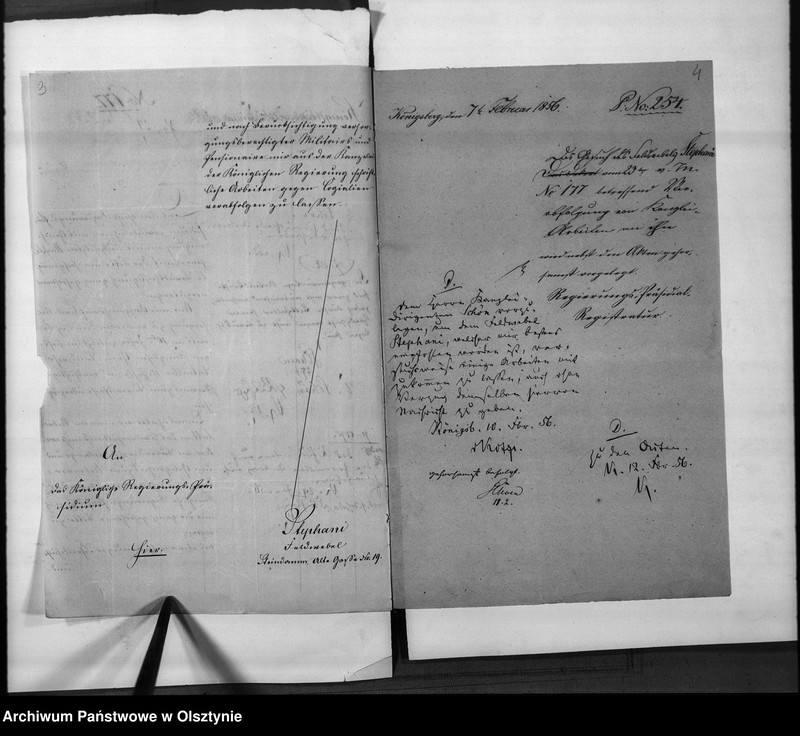 3
und nach Berücksichtigung versor-
gungsberechtigter Militairs und
Pensionaire mir aus der Kanzlei
der Königlichen Regierung schrift-
liche Arbeiten gegen Copialien
verabfolgen zu lassen.
An
das Königliche Regierungs-Prä-
sidium
Hier.
Stephani
Feldwebel
Steindamm, Alte Gasse No. 19.
4
Königsberg, den 7t Februar 1856.
P. No. 251.
Das Gesuch des Feldwebels Stephani
vom v. M.
No 177 betreffend Ver-
abfolgung von Kanzlei-
Arbeiten an ihn
wird nebst den Akten gehor-
samst vorgelegt.
Regierungs-Präsidial-
Registratur.
D.
dem Herrn Kanzlei-
Dirigenten Schön vorzu-
legen, um dem Feldwebel
Stephani, welcher mir bestens
empfohlen worden ist, ver-
suchsweise einige Arbeiten mit
zukommen zu lassen, auch ohne
Verzug demselben hiervon
Nachricht zu geben.
Königsb. 10. Fbr. 56.
gehorsamst befolgt.
Schön
11.2.
D.
zu den Acten.
K. 12. Fbr 56.
Archiwum Państwowe w Olsztynie